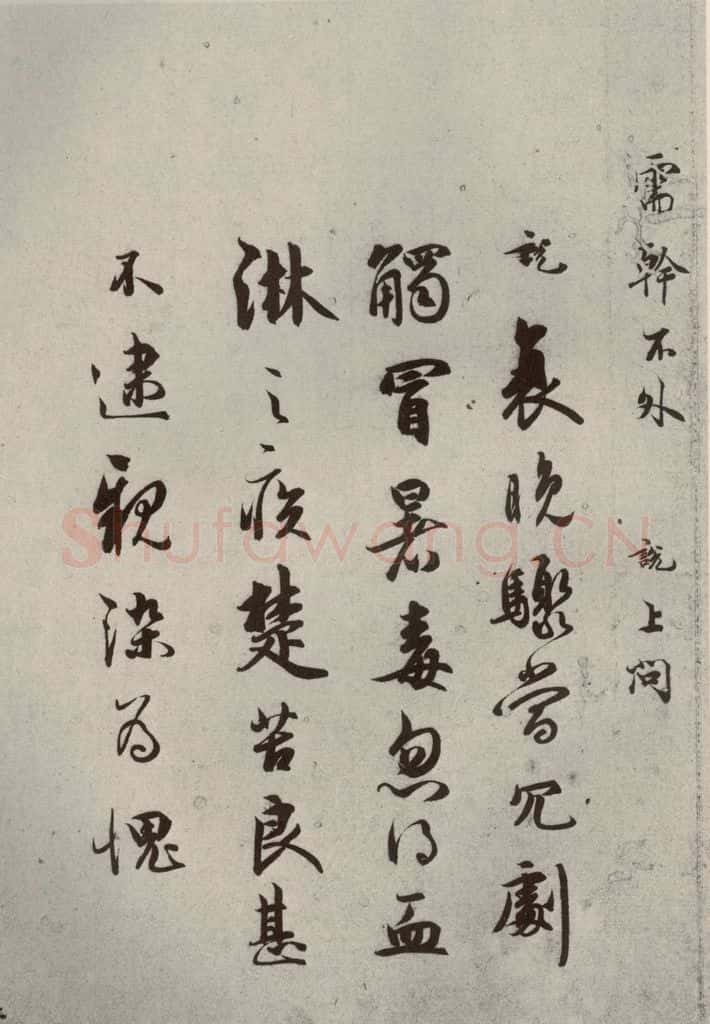 需幹不外 說上問
說衰晚驟當冗劇
觸冒暑毒忽得血
淋之疾楚苦良甚
不逮親染為愧
shufawang.CN